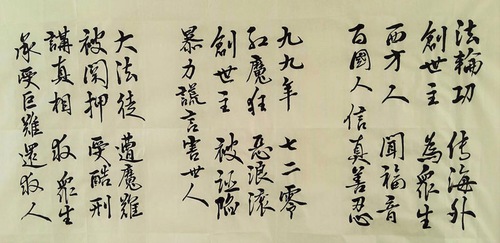 法輪功 傳海外
創世主 為眾生
西方人 聞福音
百國人 信真善忍
九九年 七二零
紅魔狂 惡浪滾
創世主 被誣陷
暴力謊言害世人
大法徒 遭魔難
被関押 受酷刑
講真相 救眾生
承受巨難還救人